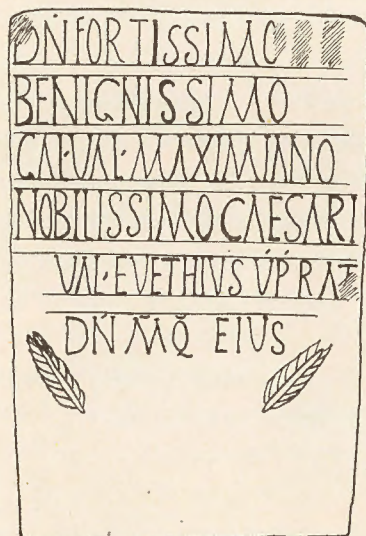 DN FORTISSIMO
BENIGNISSIMO
GAL·VAL·MAXIMIANO
NOBILISSIMO CAESARI
VAL·EVETHIVS V P RAT
DN MQ EIUS